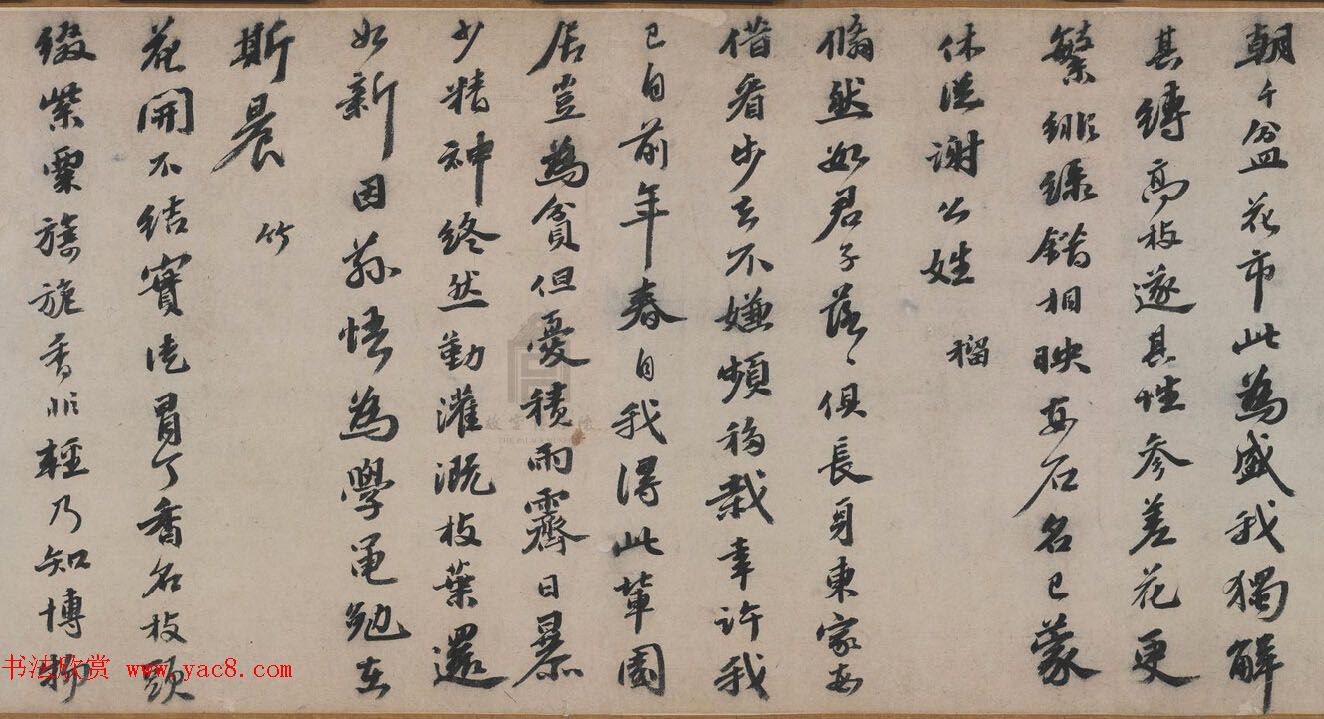 朝千盆花市此為盛我獨解
其縛高枝遂其性參差花更
繁緋綠錯相映安石名已蒙
休從謝公姓 榴
翛然如君子落〻俱長身東家每
借看步去不嫌頻移栽幸許我
已自前年春自我得此輩園
居豈為貧但憂積雨霽日暴
少精神終然勤灌溉枝葉還
如新因茲悟為學黽勉在
斯晨 竹
花開不結實徒冒丁香名枝頭
綴紫粟旖旎香非輕乃知博物
书法欣赏 www.yac8.com